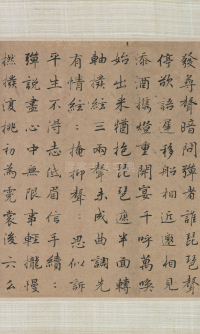 發尋聲暗問彈者誰琵琶聲
停欲語遲移船相近邀相見
添酒攜燈重開宴千呼萬喚
始出来猶抱琵琶遮半面轉
軸撥絃三兩聲未成曲調先
有情絃:掩抑聲:思似訴
平生不得志低眉信手續:
彈說盡心中無限事輕攏慢
撚撥復挑初為霓裳後六么